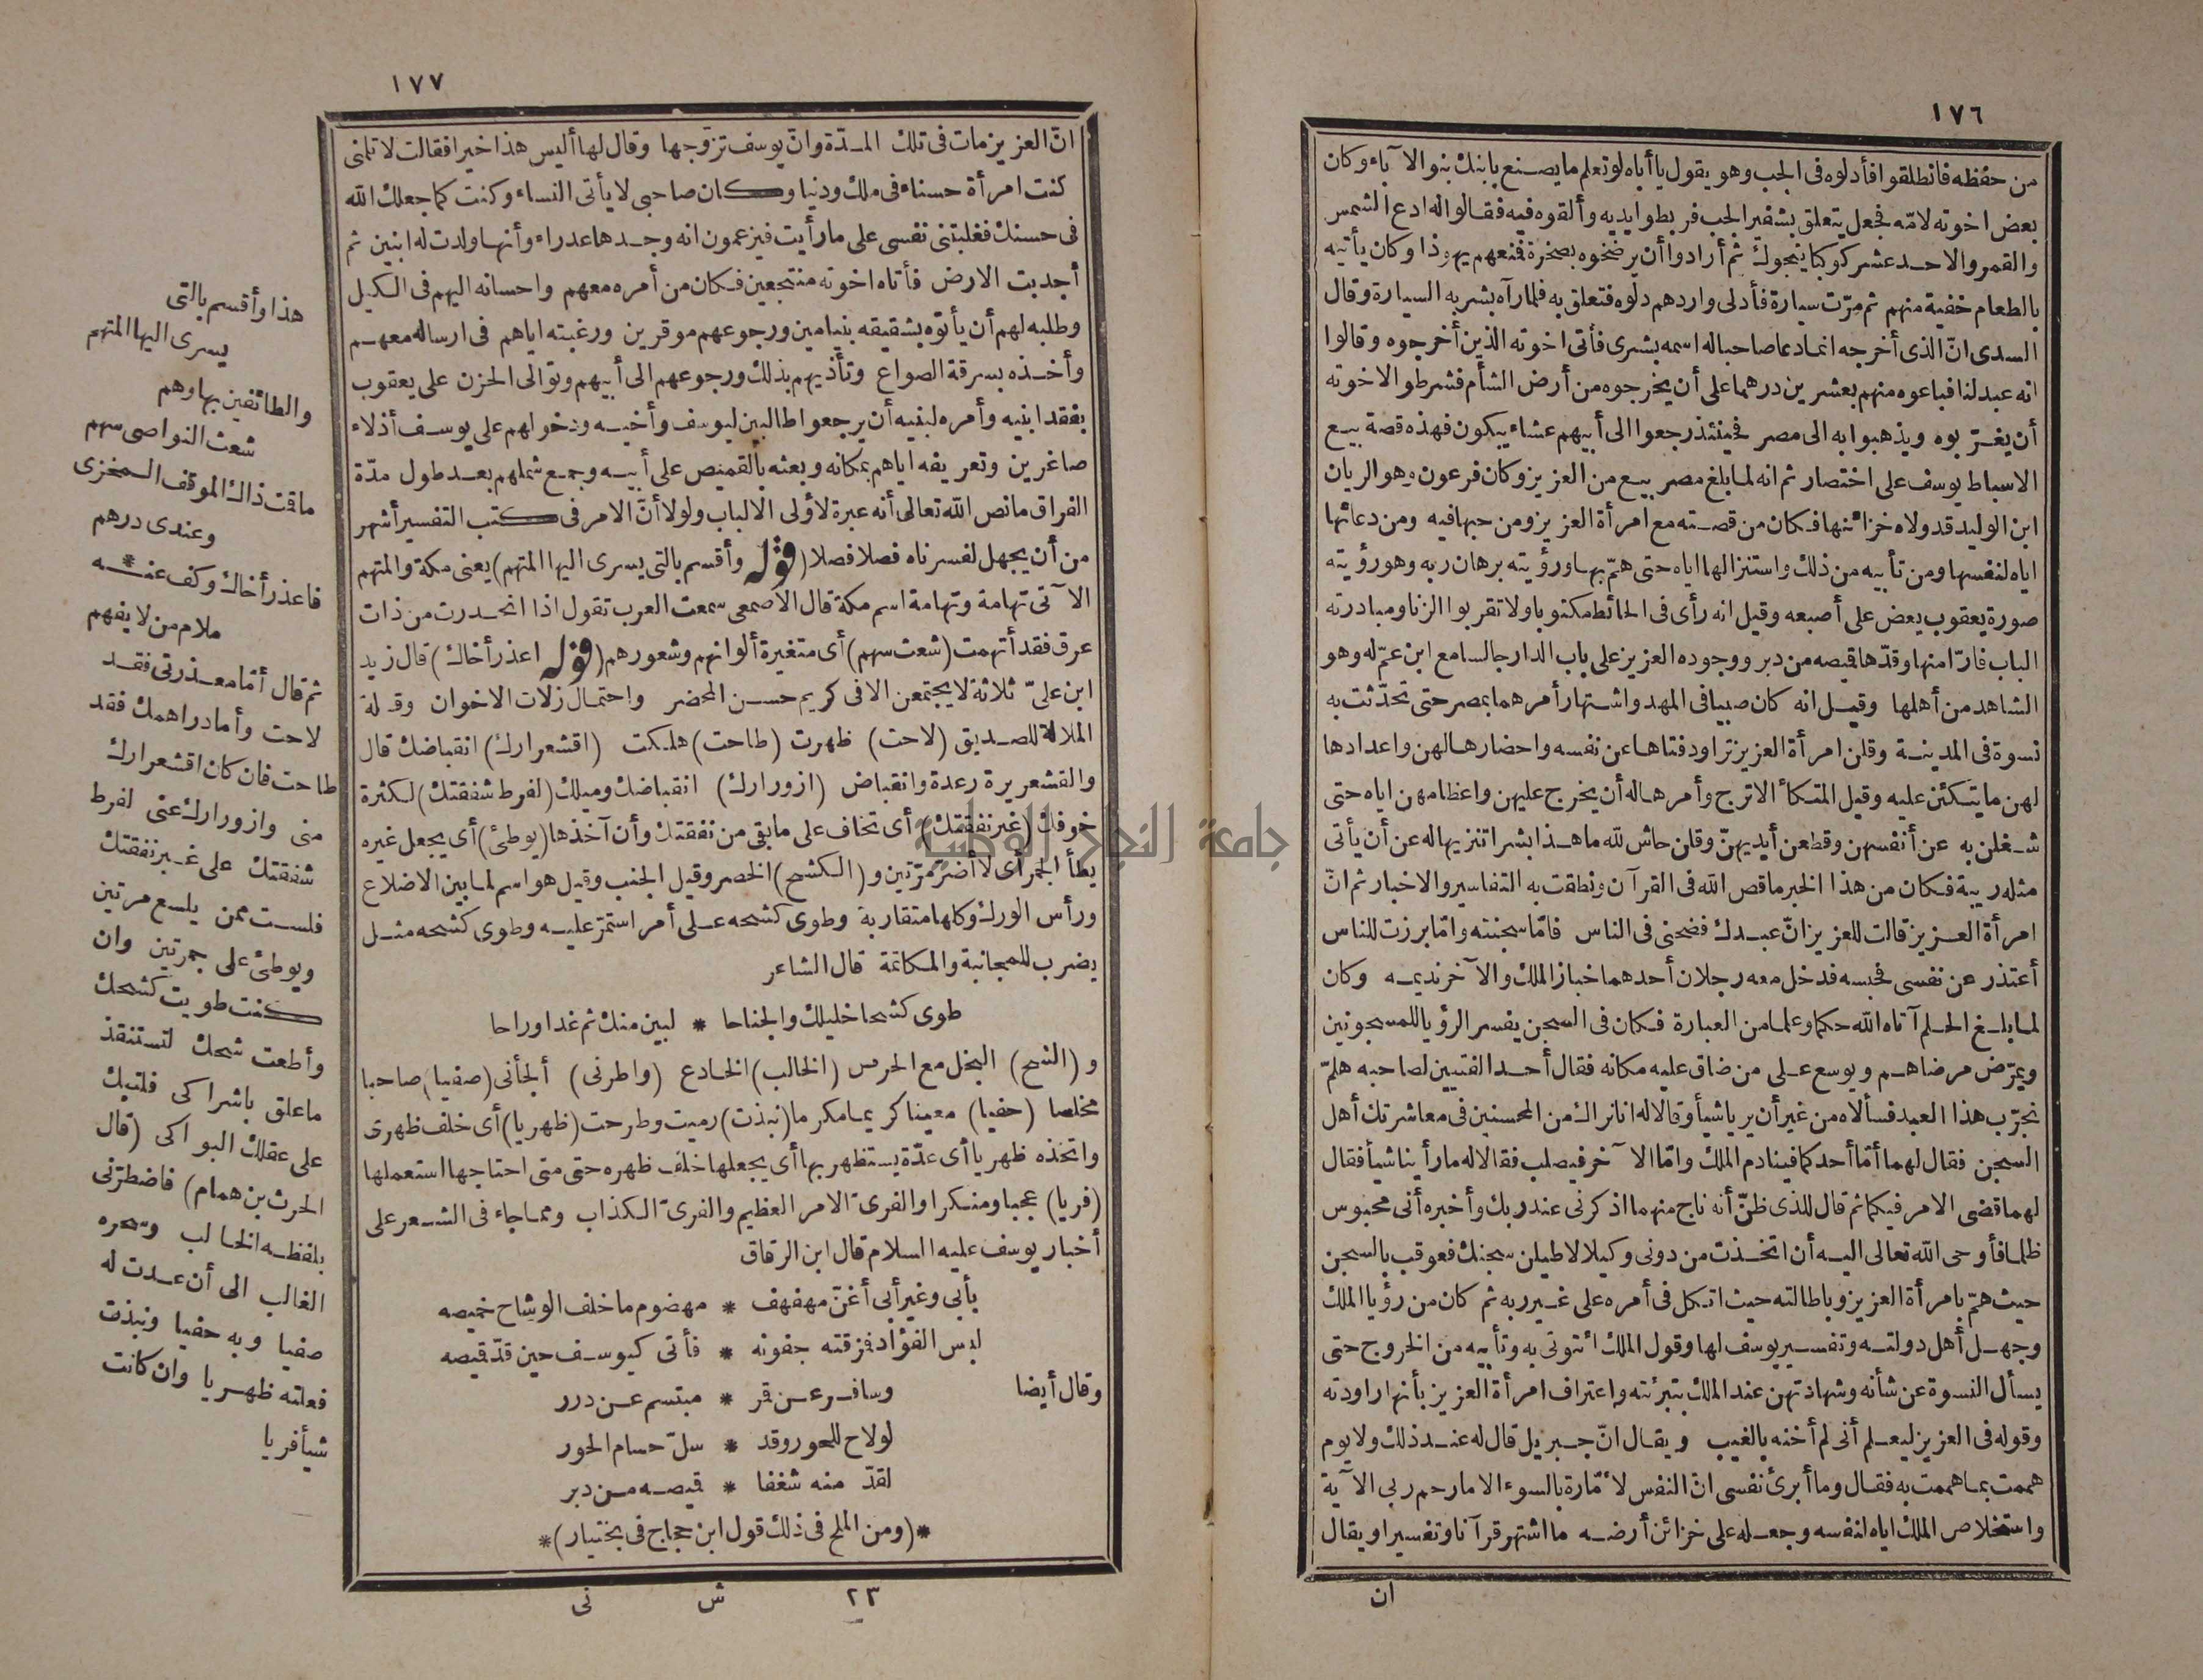 ١٧٦
من حفظه فانطلقوا فأدلوه فى الجب وهو يقول يا أباه لو تعلم ما يصنع بابنك بنو الآباء وكان
بعض اخوته لامّه فجعل يتعلق بشفير الجب فربطوا يديه وألقوه فيه فقالوا له ادع الشمس
والقمر والاحد عشر كوكبا ينجوك ثم أرادوا أن يرضخوه بصخرة فمنعهم يهوذا وكان يأتيه
بالطعام خفية منهم ثم مرّت سيارة فأدلى واردهم دلوه فتعلق به فلما رآه بشر به السيارة وقال
السدى انّ الذى أخرجه انما دعا صاحبا له اسمه بشرى فأتى اخوته الذين أخرجوه وقالوا
انه عبد لنا فباعوه منهم بعشرين درهما على أن يخرجوه من أرض الشأم فشرطوا لاخوته
أن يغرّبوه ويذهبوا به الى مصر فحينئذ رجعوا الى أبيهم عشاء يبكون فهذه قصة بيع
الاسباط يوسف على اختصار ثم انه لما بلغ مصر بيع من العزيز وكان فرعون وهو الريان
ابن الوليد قد ولاه خزائنها فكان من قصته مع امرأة العزيز ومن حبها فيه ومن دعائها
اياه لنفسها ومن تأبيه من ذلك واستنزالها اياه حتى همّ بها ورؤيته برهان ربه وهو رؤيته
صورة يعقوب يعض على أصبعه وقيل انه رأى فى الحائط مكتوبا ولا تقربوا الزنا ومبادرته
الباب فارّا منها وقدّها قميصه من دبر ووجوده العزيز على باب الدار جالسا مع ابن عمّ له وهو
الشاهد من أهلها وقيل انه كان صبيا فى المهد واشتهار أمرهما بمصر حتى تحدّثت به
نسوة فى المدينة وقلن امرأة العزيز تراود فتاها عن نفسه واحضارها لهن واعدادها
لهن ما يتكئن عليه وقيل المتكأ الاترج وأمرها له أن يخرج عليهن واعظامهن اياه حتى
شغلن به عن أنفسهن وقطعن أيديهنّ وقلن حاش لله ما هذا بشرا تنزيها له عن أن يأتى
مثله ريبة فكان من هذا الخبر ما قص الله فى القرآن ونطقت به التفاسير والاخبار ثم انّ
امرأة العزيز قالت للعزيز انّ عبدك فضحنى فى الناس فامّا سجنته وامّا برزت للناس
أعتذر عن نفسى فحبسه فدخل معه رجلان أحدهما خباز الملك والآخر نديمه وكان
لما بلغ الحلم آتاه الله حكما وعلما من العبارة فكان فى السجن يفسر الرؤيا للمسجونين
ويمرّض مرضاهم ويوسع على من ضاق عليه مكانه فقال أحد الفتيين لصاحبه هلمّ
نجرّب هذا العبد فسألاه من غير أن يريا شيأ وقالا له انا نراك من المحسنين فى معاشرتك أهل
السجن فقال لهما أمّا أحدكما فينادم الملك وامّا الآخر فيصلب فقالا له ما رأينا شيأ فقال
لهما قضى الامر فيكما ثم قال للذى ظنّ أنه ناج منهما اذكرنى عند ربك وأخبره أنى محبوس
ظلما فأوحى الله تعالى اليه أن اتخذت من دونى وكيلا لاطيلن سجنك فعوقب بالسجن
حيث همّ بامرأة العزيز وباطالته حيث اتكل فى أمره على غير ربه ثم كان من رؤيا الملك
وجهل أهل دولته وتفسير يوسف لها وقول الملك ائتونى به وتأبيه من الخروج حتى
يسأل النسوة عن شأنه وشهادتهن عند الملك بتبرئته واعتراف امرأة العزيز بأنها راودته
وقوله فى العزيز ليعلم أنى لم أخنه بالغيب ويقال انّ جبريل قال له عند ذلك ولا يوم
هممت بما هممت به فقال وما أبرئ نفسى انّ النفس لأمّارة بالسوء الا ما رحم ربى الآية
واستخلاص الملك اياه لنفسه وجعله على خزائن أرضه ما اشتهر قرآنا وتفسيرا ويقال
ان
١٧٧
انّ العزيز مات فى تلك المدّة وانّ يوسف تزوّجها وقال لها أليس هذا خيرا فقالت لا تلمنى
كنت امرأة حسناء فى ملك ودنيا وكان صاحبى لا يأتى النساء وكنت كما جعلك الله
فى حسنك فغلبتنى نفسى على ما رأيت فيزعمون انه وجدها عذراء وأنها ولدت له ابنين ثم
أجدبت الارض فأتاه اخوته منتجعين فكان من أمره معهم واحسانه اليهم فى الكيل
وطلبه لهم أن يأتوه بشقيقه بنيامين ورجوعهم موقرين ورغبته اياهم فى ارساله معهم
وأخذه بسرقة الصواع وتأذيهم بذلك ورجوعهم الى أبيهم وتوالى الحزن على يعقوب
بفقد ابنيه وأمره لبنيه أن يرجعوا طالبين ليوسف وأخيه ودخولهم على يوسف أذلاء
صاغرين وتعريفه اياهم بمكانه وبعثه بالقميص على أبيه وجمع شملهم بعد طول مدّة
الفراق ما نص الله تعالى أنه عبرة لأولى الالباب ولولا أنّ الامر فى كتب التفسير أشهر
من أن يجهل لفسرناه فصلا فصلا (قوله وأقسم بالتى يسرى اليها المتهم) يعنى مكة والمتهم
الآتى تهامة وتهامة اسم مكة قال الاصمعى سمعت العرب تقول اذا انحدرت من ذات
عرق فقد أتهمت (شعث سهم) أى متغيرة ألوانهم وشعورهم (قوله اعذر أخاك) قال زيد
ابن علىّ ثلاثة لا يجتمعن الا فى كريم حسن المحضر واحتمال زلات الاخوان وقلة
الملالة للصديق (لاحت) ظهرت (طاحت) هلكت (اقشعرارك) انقباضك قال
والقشعريرة رعدة وانقباض (ازورارك) انقباضك وميلك (لفرط شفقتك) لكثرة
خوفك (غبر نفقتك) أى تخاف على ما بقى من نفقتك وأن آخذها (يوطئ) أى يجعل غيره
يطأ الجمر أى لا أضرّ مرّتين و (الكشح) الخصر وقيل الجنب وقيل هو اسم لما بين الاضلاع
ورأس الورك وكلها متقاربة وطوى كشحه على أمر استمرّ عليه وطوى كشحه مثل
يضرب للمجانبة والمكاتمة قال الشاعر
طوى كشحا خليلك والجناحا * لبين منك ثم غدا وراحا
و (الشح) البخل مع الحرص (الخالب) الخادع (واطرنى) ألجأنى (صفيا) صاحبا
مخلصا (حفيا) معينا كريما مكرما (نبذت) رميت وطرحت (ظهريا) أى خلف ظهرى
واتخذه ظهريا أى عدّة يستظهر بها أى يجعلها خلف ظهره حتى متى احتاجها استعملها
(فريا) عجبا ومنكرا والفرىّ الامر العظيم والفرىّ الكذاب ومما جاء فى الشعر على
أخبار يوسف عليه السلام قال ابن الرقاق
بأبى وغير أبى أغنّ مهفهف * مهضوم ما خلف الوشاح خميصه
لبس الفؤاد فمزقته جفونه * فأتى كيوسف حين قدّ قميصه
وقال أيضا وسافر عن قمر * مبتسم عن درر
لولاح للحور وقد * سلّ حسام الحور
لقدّ منه شغفا * قميصه من دبر
*(ومن الملح فى ذلك قول ابن حجاج فى بختيار)*
٢٣ ش نى
هذا وأقسم بالتى
يسرى اليها المتهم
والطائفين بها وهم
شعث النواصى سهم
ما قت ذاك الموقف المخزى
وعندى درهم
فاعذر أخاك وكف عنه
ملام من لا يفهم
ثم قال أمّا معذرتى فقد
لاحت وأما دراهمك فقد
طاحت فان كان اقشعرارك
منى وازورارك عنى لفرط
شفقتك على غبر نفقتك
فلست ممن يلسع مرتين
ويوطئ على جمرتين وان
كنت طويت كشحك
وأطعت شحك لتستنقذ
ما علق باشراكى فلتبك
على عقلك البواكى (قال
الحرث بن همام) فاضطرّنى
بلفظه الخالب وسحره
الغالب الى أن عدت له
صفيا وبه حفيا ونبذت
فعلته ظهريا وان كانت
شيأ فريا
جامعة النجاح الوطنية